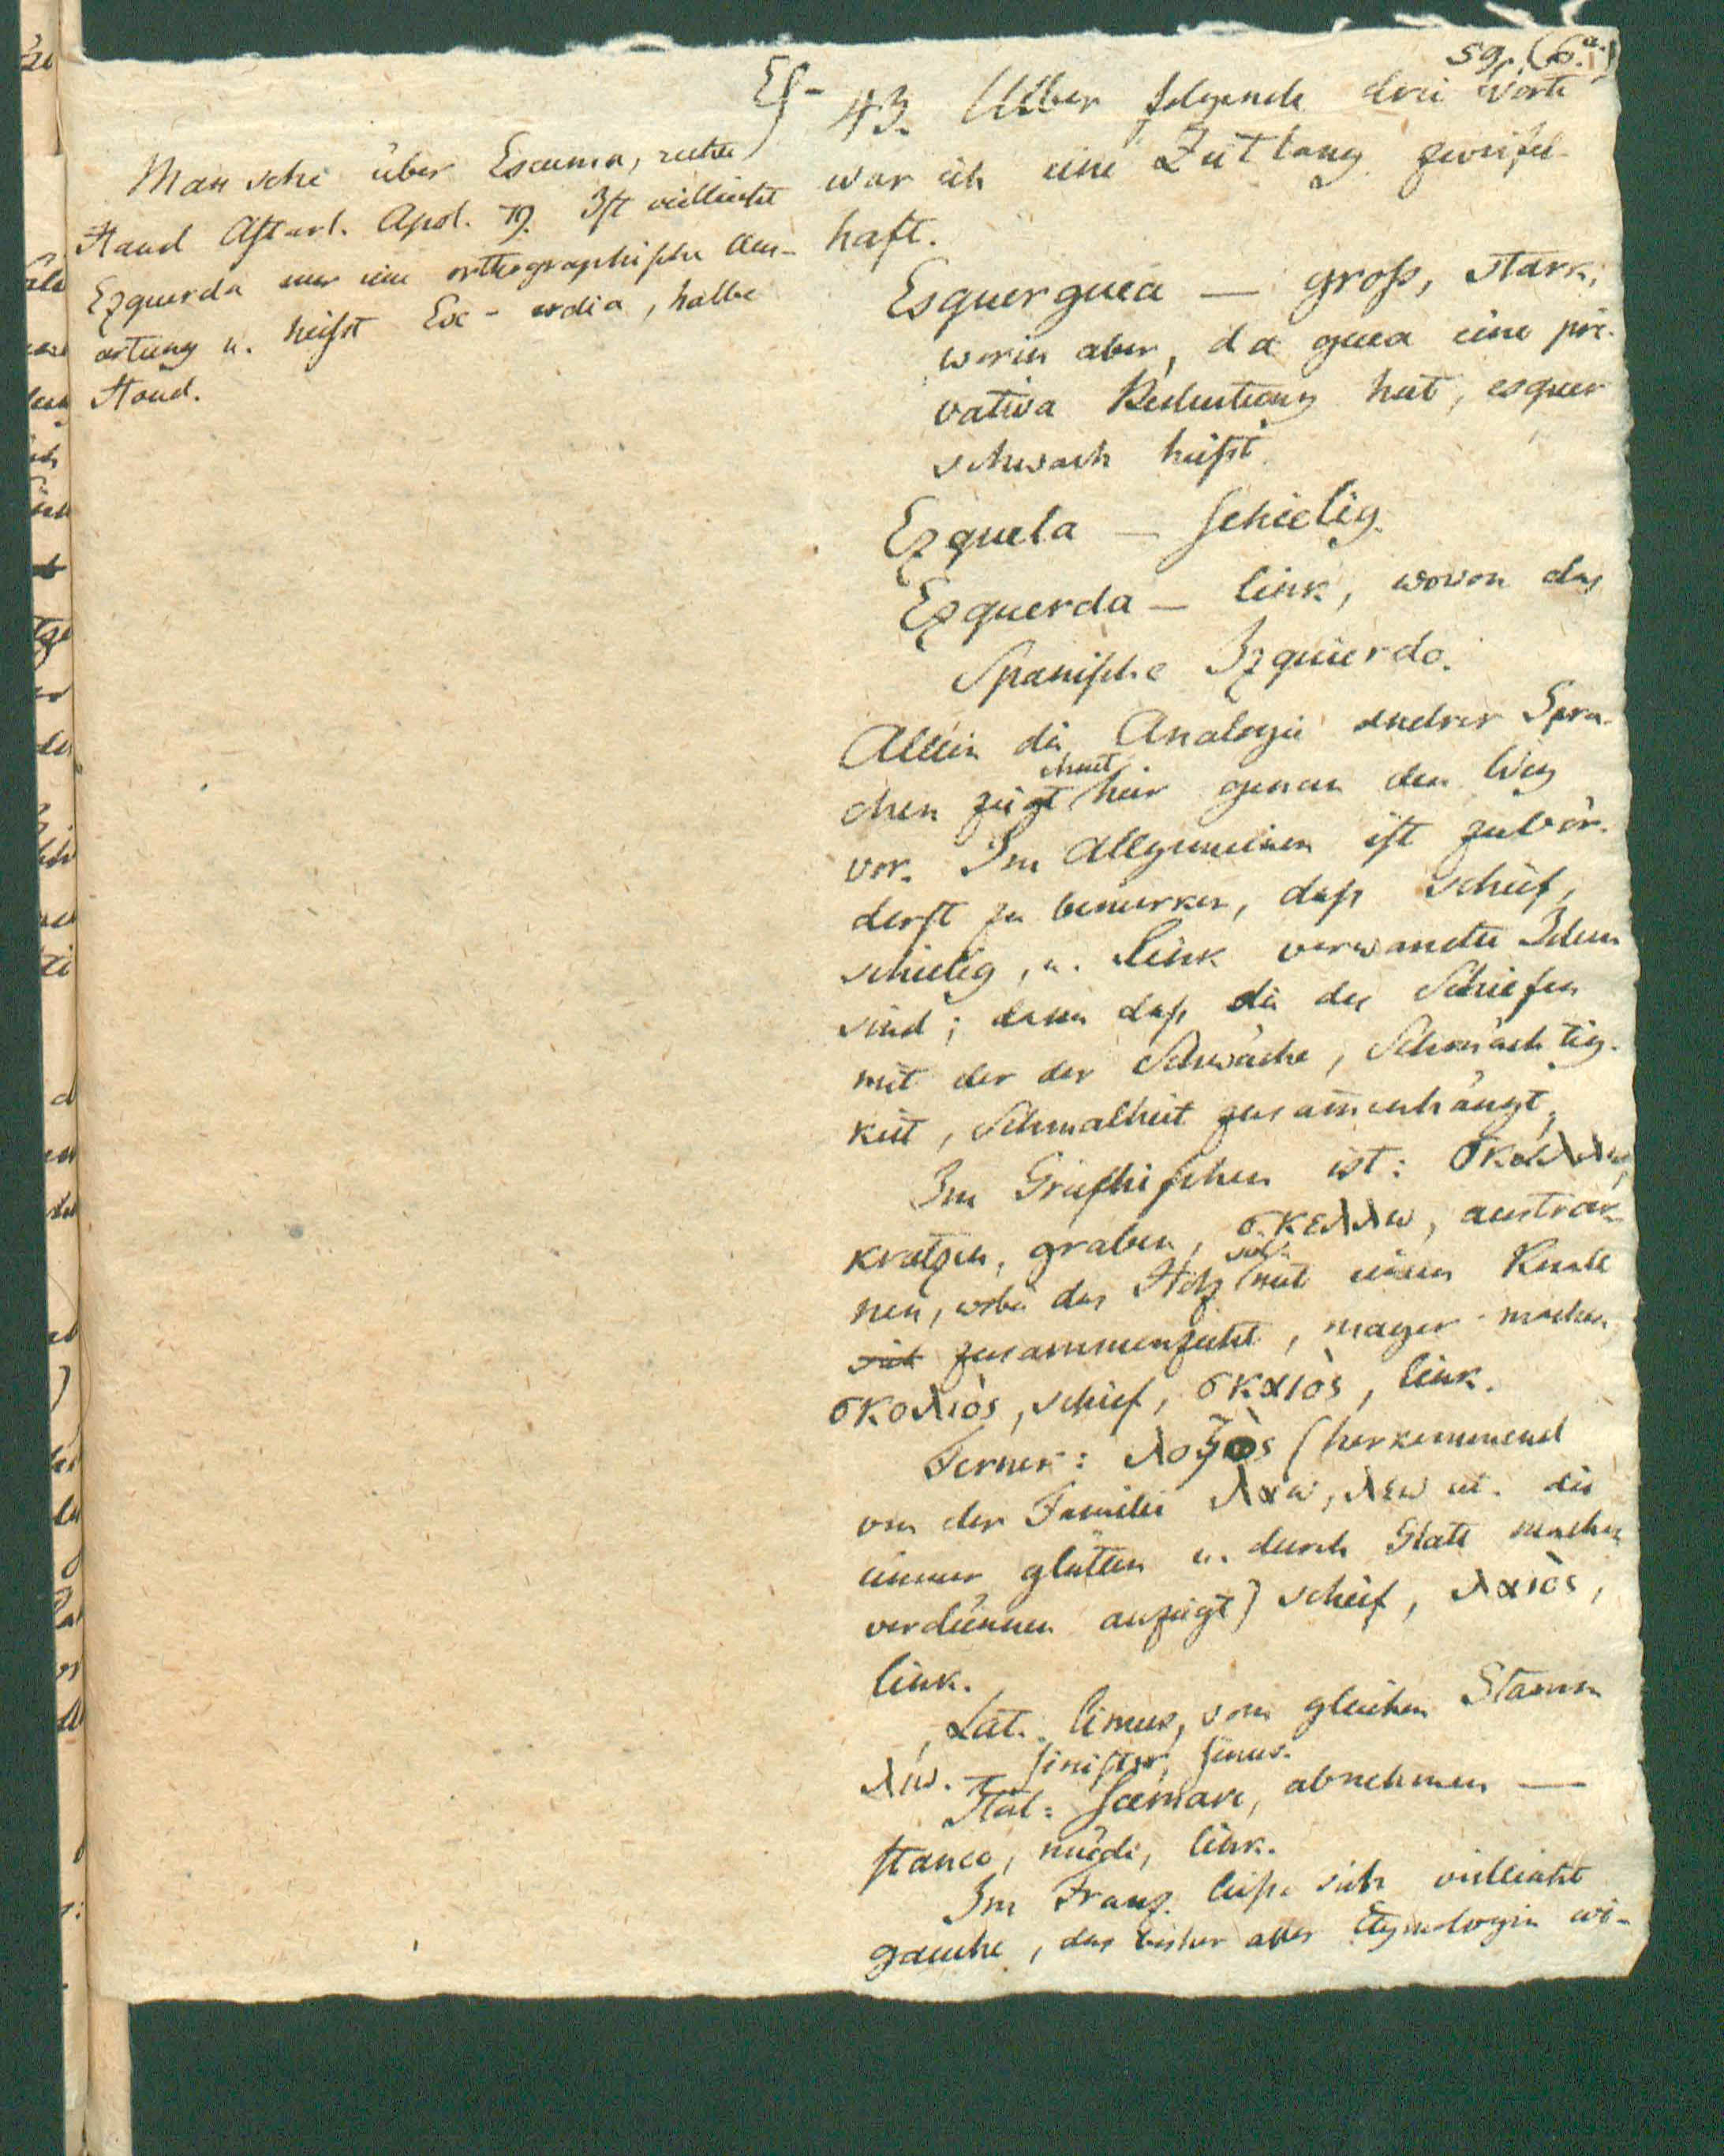 59. (6.a.)
Es-
Man sehe über Escuma, rechte
Hand Astarl. Apol. 79. Ist vielleicht
Ezquerda nur eine orthographische Aus-
artung u. heisst Esc-erdia, halbe
Hand.
43. Ueber folgende drei Worte
war ich eine Zeitlang zweifel-
haft.
Esquerguea — gross, stark,
worin aber, da guea eine pri-
vativa Bedeutung hat, esquer
schwach heisst.
Ezquela — schielig.
Ezquerda — link, wovon das
Spanische Izquierdo.
Allein die Analogie andrer Spra-
chen zeigt hier genau den Weg
vor. Im Allgemeinen ist zuvör-
derst zu bemerken, dass schief,
schielig, u. link verwandte Ideen
sind; dann dass die des Schiefen
mit der der Schwäche, Schmächtig-
keit, Schmalheit zusammenhängt.
Im Griechischen ist: σκαλλω,
kratzen, graben, σκελλω, austrock-
nen, wobei das Holz sich mit einem Knall
sich zusammenzieht, mager machen,
σκολιὸς, schief, σκαιὸς, link.
Ferner: λοξὸς (herkommend
von der Familie λαω, λεω etc. die
immer glätten u. durch Glatt machen
verdünnen anzeigt) schief, λαιὸς,
link.
Lat. limus, vom gleichen Stamm
λιω. — sinister, sinus.
Ital: scemare, abnehmen —
stanco, müde, link.
Im Franz. liesse sich vielleicht
gauche, das bisher aller Etymologie wi-